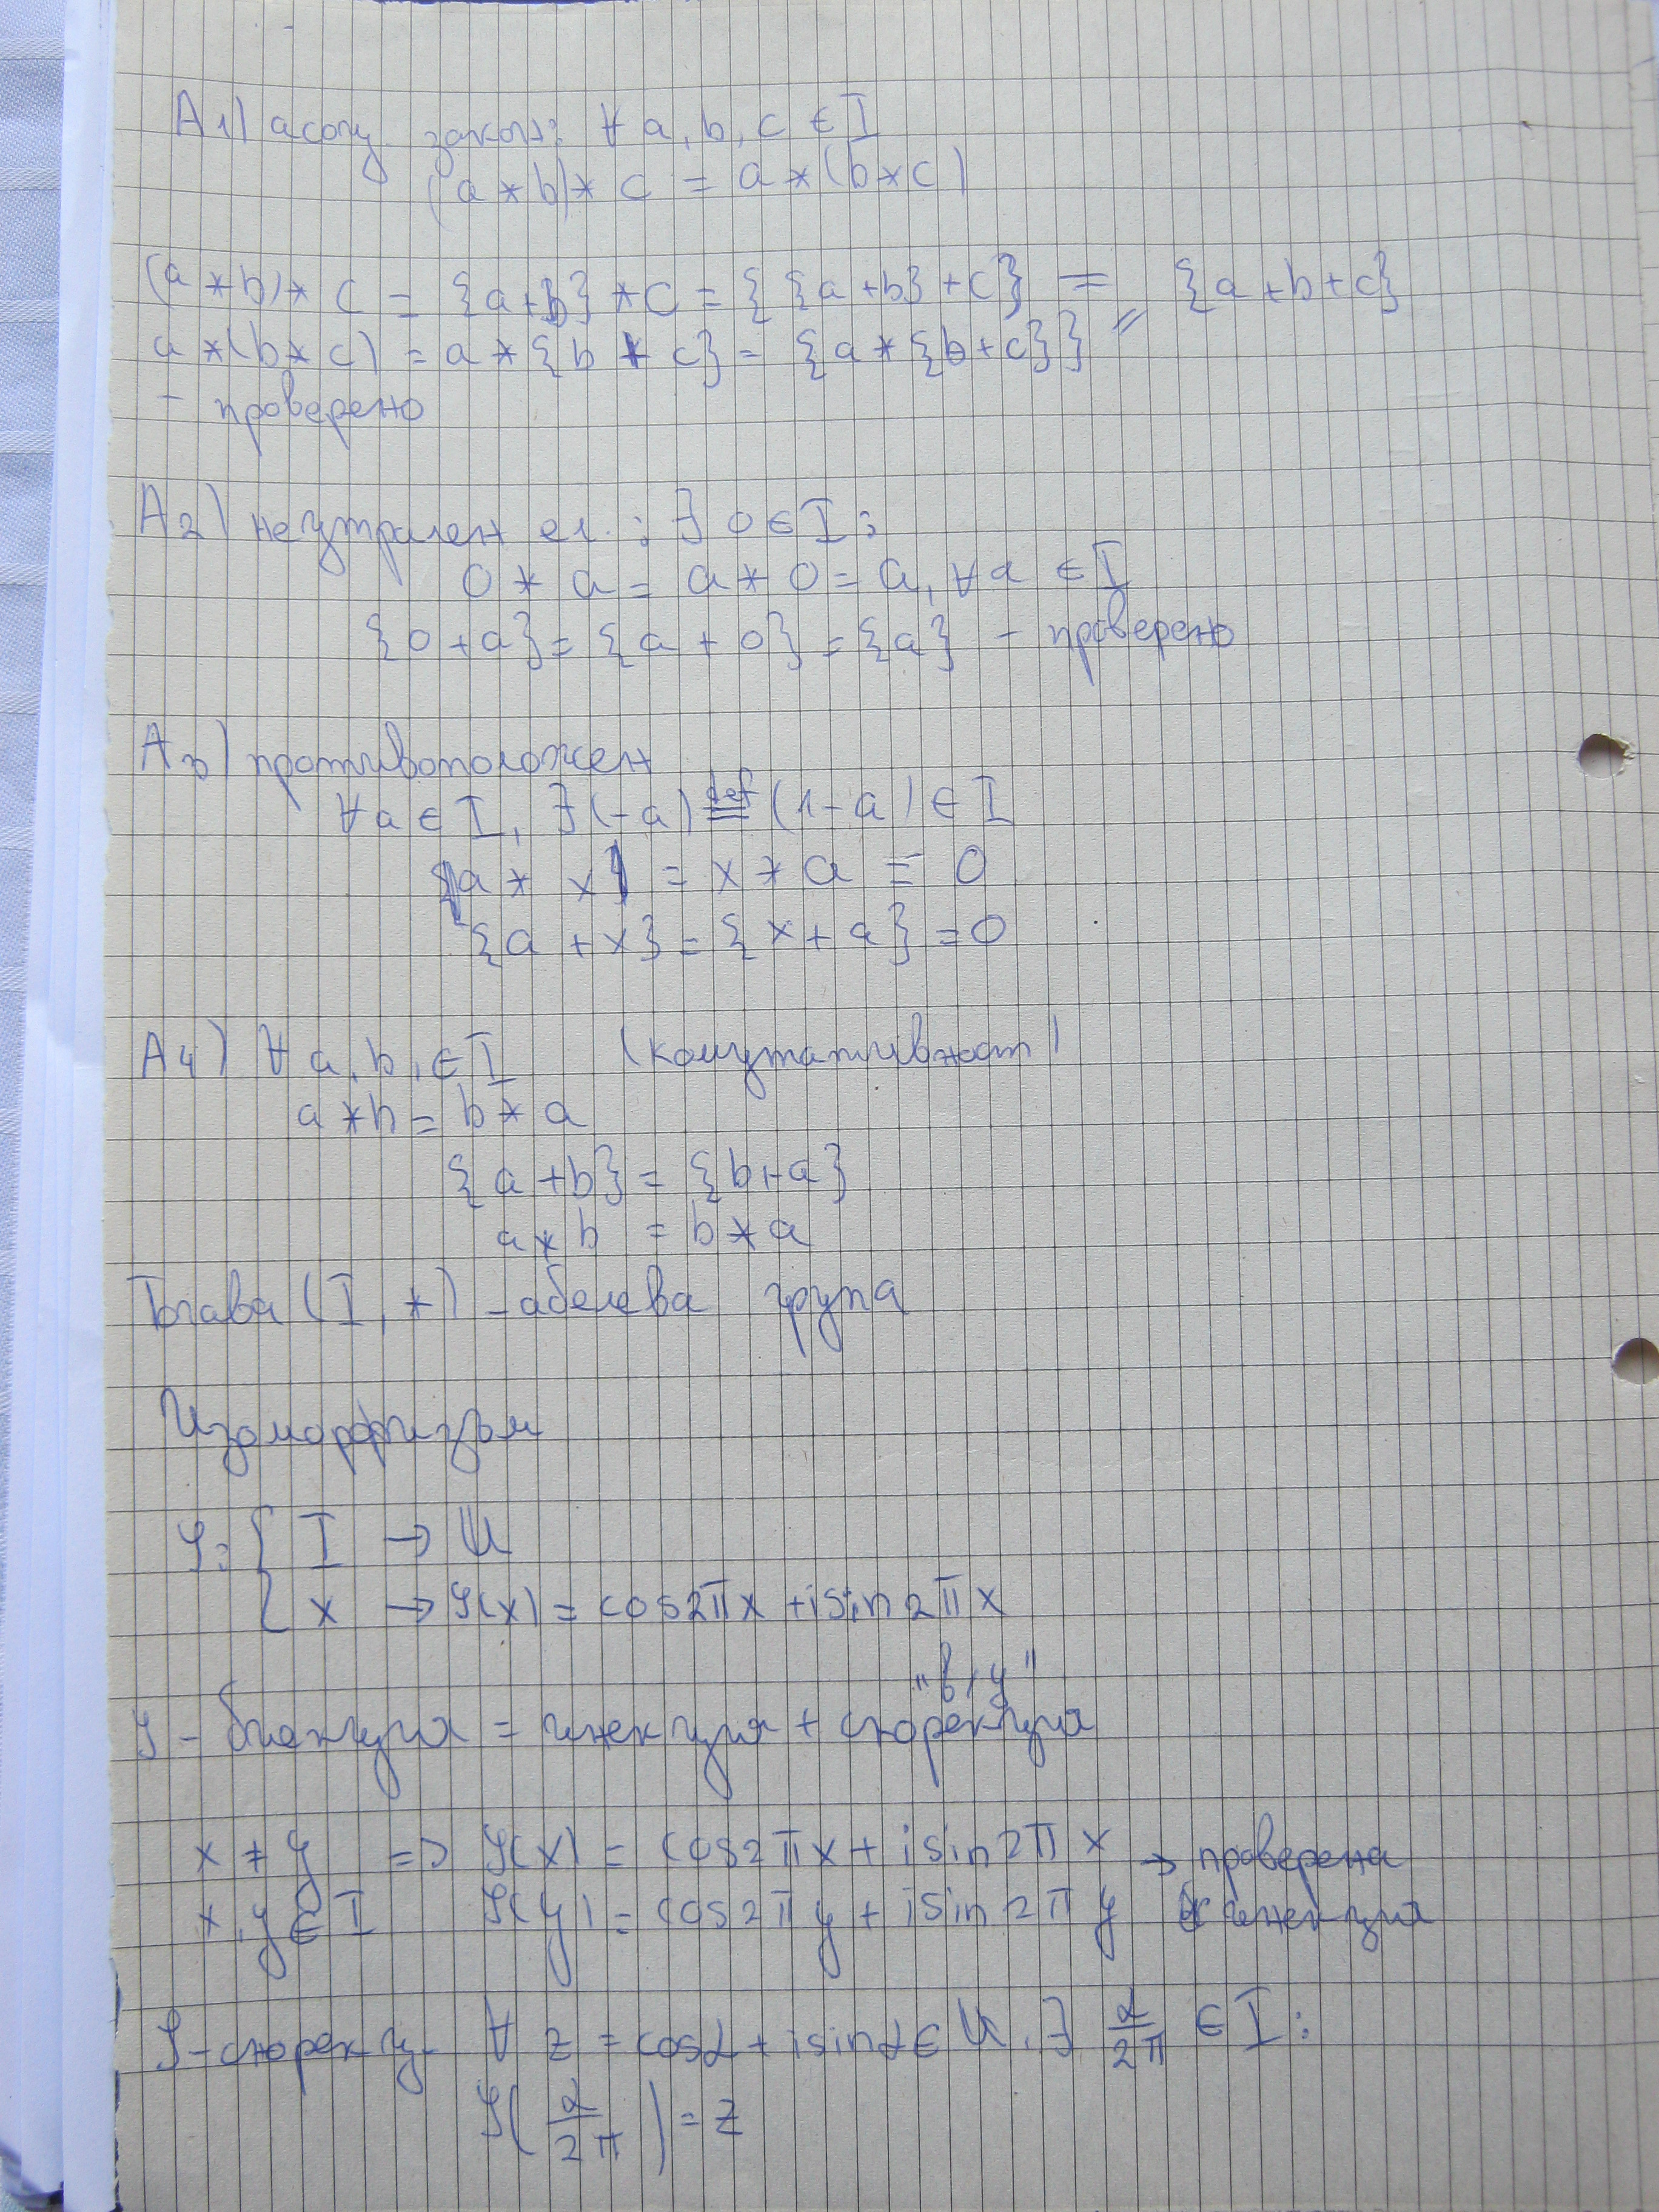 A1) асоц. закон: ∀ a, b, c ∈ I
(a * b) * c = a * (b * c)
(a * b) * c = {a+b} * c = { {a+b} + c} = {a+b+c}
a * (b * c) = a * {b + c} = {a * {b+c}} =
- проверено
A2) неутрален ел. : ∃ 0 ∈ I :
0 * a = a * 0 = a, ∀ a ∈ I
{0 + a} = {a + 0} = {a} - проверено
A3) противоположен
∀ a ∈ I, ∃ (-a) def= (1-a) ∈ I
a * x = x * a = 0
{a + x} = {x + a} = 0
A4) ∀ a, b, ∈ I (комутативност)
a * b = b * a
{a + b} = {b + a}
a * b = b * a
Тогава (I, *) - абелева група
Изоморфизъм
φ: { I → U
{ x → φ(x) = cos2πx + isin2πx
"в/у"
φ - биекция = инекция + сюрекция
x ≠ y => φ(x) = cos2πx + isin2πx → проверена
x, y ∈ I φ(y) = cos2πy + isin2πy инекция
φ - сюрекц. ∀ z = cosα + isinα ∈ U, ∃ α/2π ∈ I :
φ(α/2π) = z